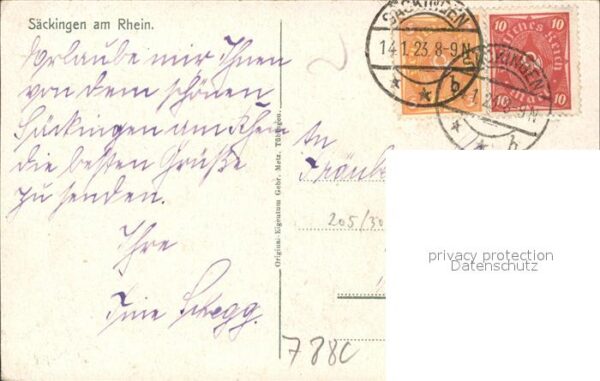 Säckingen am Rhein.
Erlaube mir Ihnen
von dem schönen
Säckingen am Rhein
die besten Grüße
zu senden.
Ihre
Origin.-Eigentum Gebr. Metz, Tübingen.
SÄCKINGEN
14.1.23.8-9N
b
Deutsches Reich
10 10
SÄCKINGEN
8-9N
b
An
Fräule
205/30
privacy protection
Datenschutz
788C